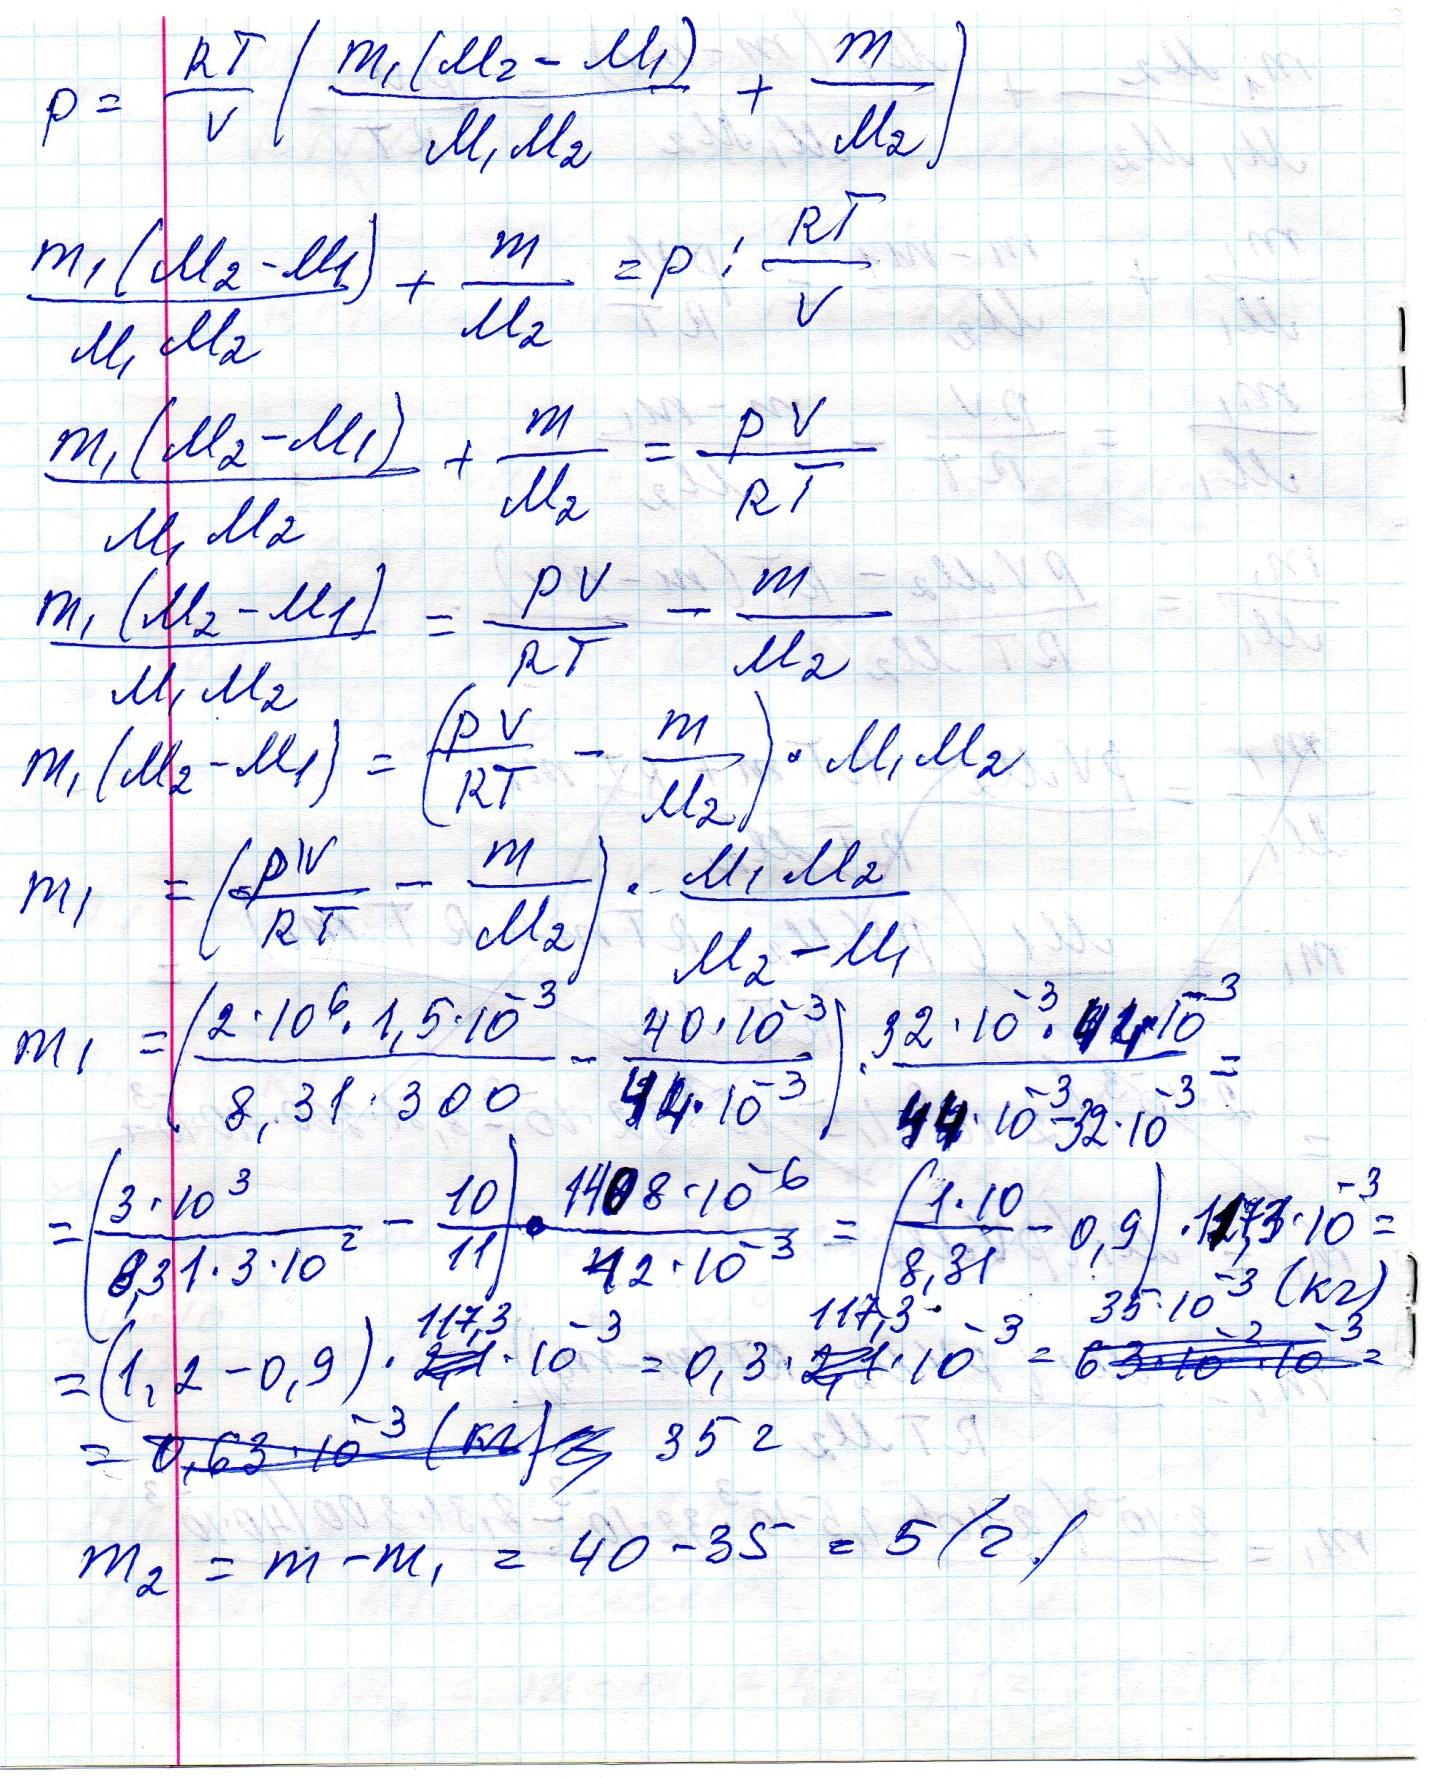 p = RT/V ( m₁(M₂ - M₁)/M₁M₂ + m/M₂ )
m₁(M₂ - M₁)/M₁M₂ + m/M₂ = p : RT/V
m₁(M₂ - M₁)/M₁M₂ + m/M₂ = pV/RT
m₁(M₂ - M₁)/M₁M₂ = pV/RT - m/M₂
m₁(M₂ - M₁) = (pV/RT - m/M₂) · M₁M₂
m₁ = (pV/RT - m/M₂) · M₁M₂/M₂ - M₁
m₁ = (2·10⁶·1,5·10⁻³/8,31·300 - 40·10⁻³/44·10⁻³) · 32·10⁻³·44·10⁻³/44·10⁻³-32·10⁻³ =
= (3·10³/8,31·3·10² - 10/11) · 1408·10⁻⁶/12·10⁻³ = (1·10/8,31 - 0,9) · 117,3·10⁻³ =
= (1,2 - 0,9) · 117,3·10⁻³ = 0,3 · 117,3·10⁻³ = 35·10⁻³ (кг)
= 35 г
m₂ = m - m₁ = 40 - 35 = 5 (г)